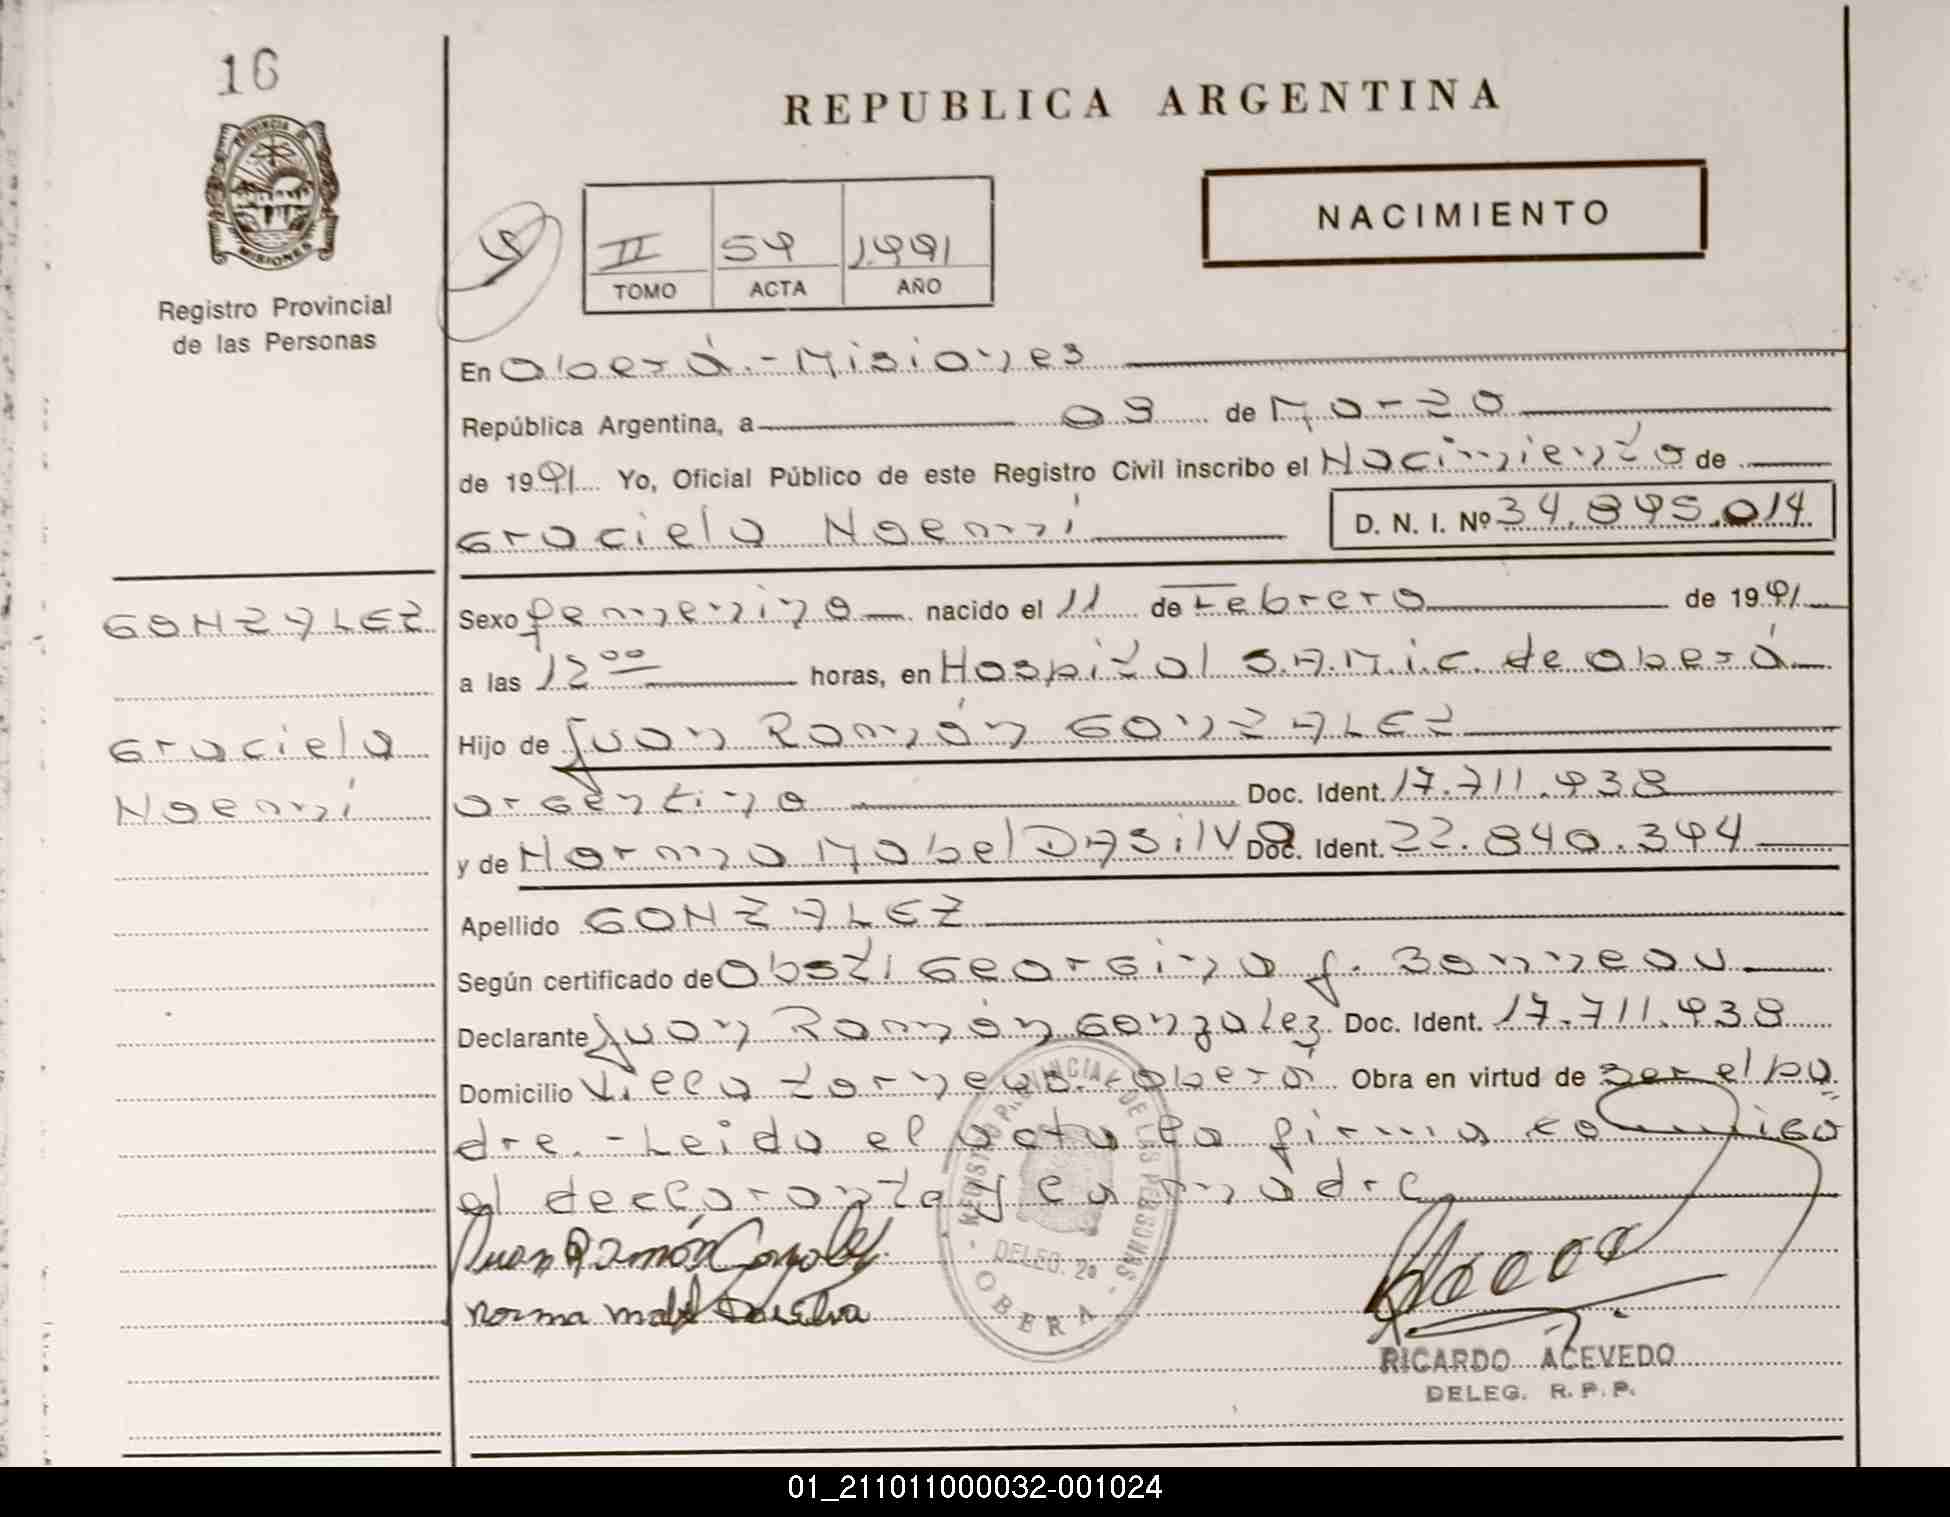 16
REPUBLICA ARGENTINA
PROVINCIA DE
MISIONES
Registro Provincial
de las Personas
II 59 1991
TOMO ACTA AÑO
NACIMIENTO
En Oberá.-Misiones
República Argentina, a 08 de Marzo
de 1991 Yo, Oficial Público de este Registro Civil inscribo el Nacimiento de
Graciela Noemí D. N. I. Nº 34.895.014
GONZALEZ
Graciela
Noemí
Sexo femenino nacido el 11 de Febrero de 1991
a las 12 00 horas, en Hospital S.A.M.i.c. de oberá
Hijo de Juan Ramón GONZALEZ
argentino Doc. Ident. 17.711.938
y de Norma Mabel DASilVA Doc. Ident. 22.840.394
Apellido GONZALEZ
Según certificado de Obst. Georgina J. Bonneau
Declarante Juan Ramón Gonzalez Doc. Ident. 17.711.938
Domicilio Villa oberá Obra en virtud de ser el pa
dre.-Leida el acta la firma conmigo
el declarante y la madre
Juan Ramón Gonzalez
Norma Mabel Dasilva
REGISTRO PROVINCIAL DE LAS PERSONAS
DELEG. 2a
OBERA
RICARDO ACEVEDO
DELEG. R.P.P.
01_211011000032-001024